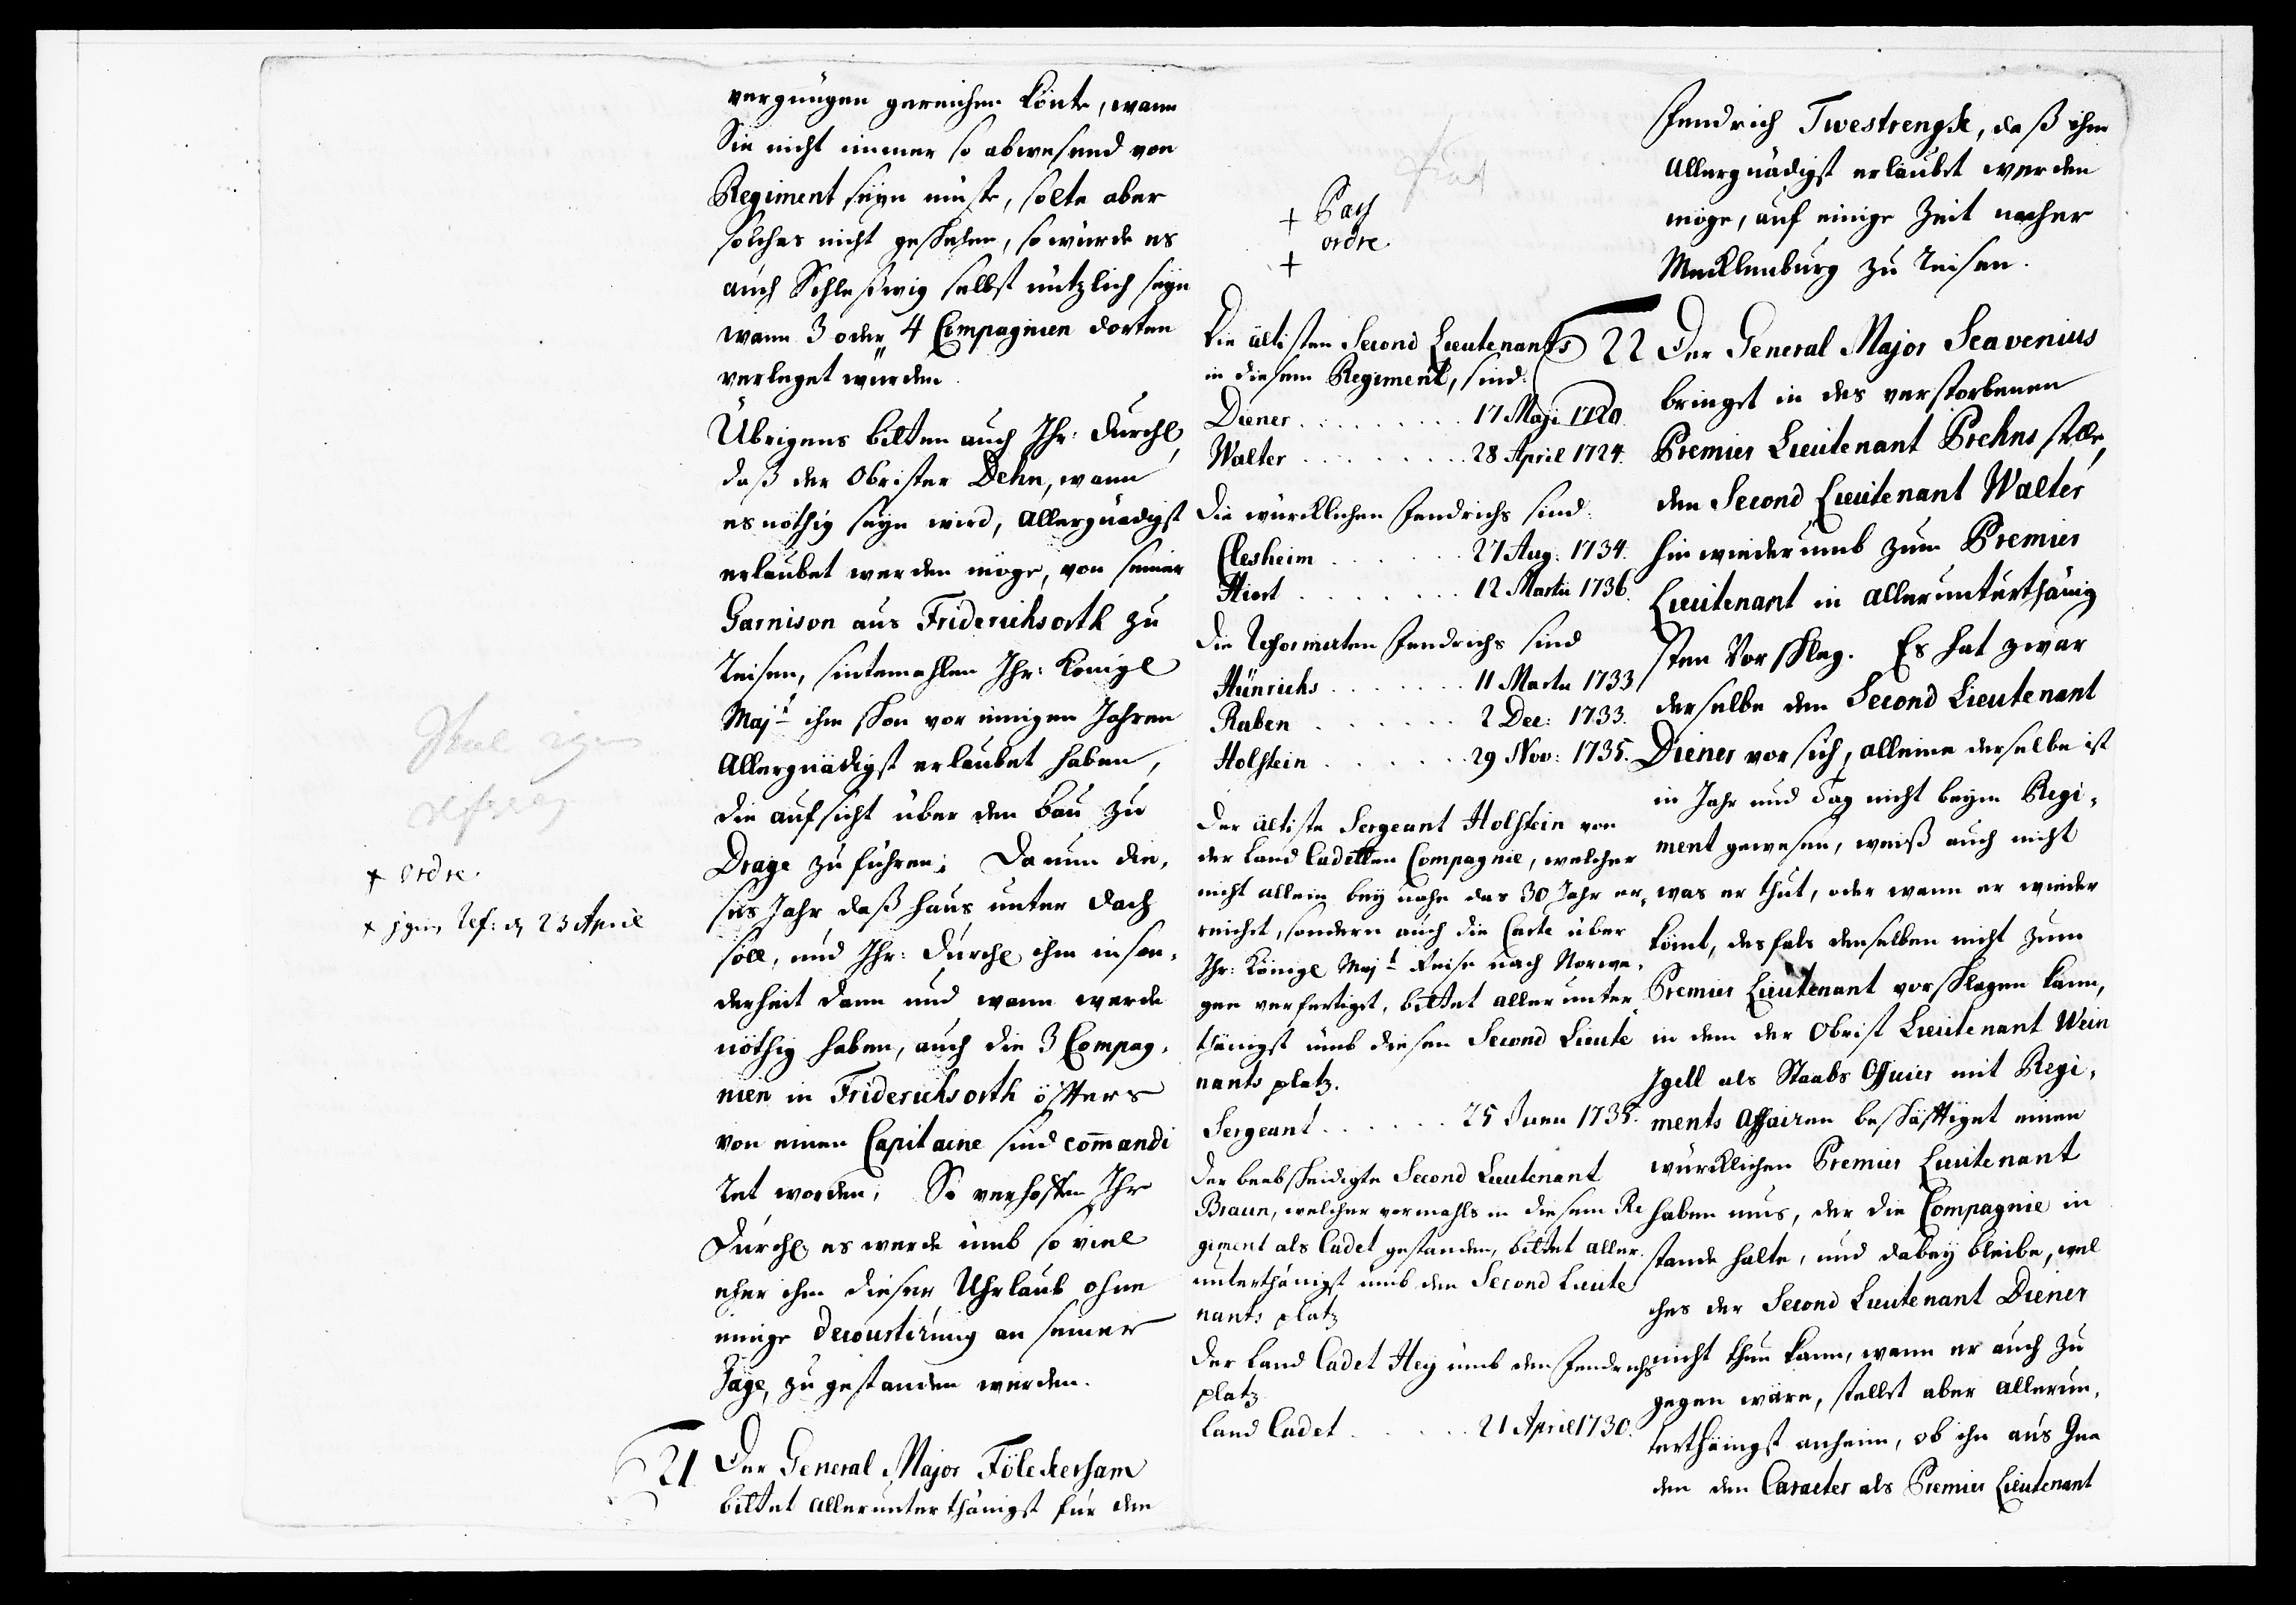 vergnügen gereichen könte, wann
Sie nicht immer so abwesend von
Regiment seyn müste, solte aber
solches nicht geschehen, so würde es
auch Schleßwig selbst nützlich seyn
wann 3 oder 4 Compagnien dorten
verleget würden.
Übrigens bitten auch Ihr: Durchl,
daß der Obrister Dehn, wann
es nöthig seyn wird, Allergnädigst
erlaubet werden möge, von seiner
Garnison aus Friderichsorth zu
Reisen, sintemahlen Ihr: Königl
Majt ihm schon vor einigen Jahren
Allergnädigst erlaubet haben,
die aufsicht über den bau zu
Drage zu führen; Da nun die,
ses Jahr daß Haus unter dach
soll, und Ihr: Durchl ihm inson,
derheit dann und wann werde
nöthig haben, auch die 3 Compag,
nien in Friderichsorth öffters
von einen Capitaine sind comandi
ret worden; So verhoffen Ihr
Durchl. es werde umb so viel
eher ihm dieser Uhrlaub ohne
einige decourtirung an seiner
Gage, zugestanden werden.
21 Der General Major Fölckersam
bittet allerunterthänigst für den
+ ordre
+ Ref: d 23 April
+ Pass
ordre
+
Die ältisten Second Lieutenants
in diesem Regiment, sind:
Diener . . . . . . . . . 17 Maji 1720.
Walter . . . . . . . . 28 April 1724.
Die würcklichen Fendrichs sind:
Clesheim . . . . . . 27 Aug: 1734.
Hiort . . . . . . . 12 Martii 1736.
Die Reformirten Fendrichs sind
Hünrichs . . . . . . . 11 Martii 1733
Raben . . . . . . 2 Dec: 1733.
Holstein . . . . . . . 29 Nov: 1735.
Der ältiste Sergeant Holstein von
der Land Cadetten Compagnie, welcher
nicht allein bey nahe das 30 Jahr er,
reichet, sondern auch die Carte über
Ihr: Königl Majt Reise nach Norwe,
gen verfertiget, bittet allerunter
thänigst umb diesen Second Lieute
nants platz.
Sergeant . . . . . . 25 Junii 1735.
Der beabscheidigte Second Lieutenant
Braun, welcher vormahls in diesem Re
giment als Cadet gestanden, bittet aller
unterthänigst umb den Second Lieute
nants platz
Der Land Cadet Hey umb den Fendrichs
platz
Land Cadet . . . . . . 21 April 1730.
Fendrich Twestrengk, daß ihm
Allergnädigst erlaubet werden
möge, auf einige Zeit nacher
Mecklenburg zu Reisen.
22 Der General Major Scavenius
bringet in des verstorbenen
Premier Lieutenant Brehns stelle,
den Second Lieutenant Walter
hinwiederumb zum Premier
Lieutenant in allerunterthänig
sten Vorschlag. Es hat zwar
derselbe den Second Lieutenant
Diener vor sich, alleine derselbe ist
in Jahr und Tag nicht beym Regi,
ment gewesen, weiß auch nicht
was er thut, oder wann er wieder
kömt, desfals denselben nicht zum
Premier Lieutenant vorschlagen kann,
in dem der Obrist Lieutenant Wein
Igell als Staabs Officier mit Regi,
ments Affairen beschäfftiget einen
würcklichen Premier Lieutenant
haben mus, der die Compagnie in
stande halte, und dabey bleibe, wel
ches der Second Lieutenant Diener
nicht thun kann, wann er auch zu
gegen wäre, stellet aber allerun,
terthänigst anheim, ob ihn aus Gna
den den Caracter als Premier Lieutenant